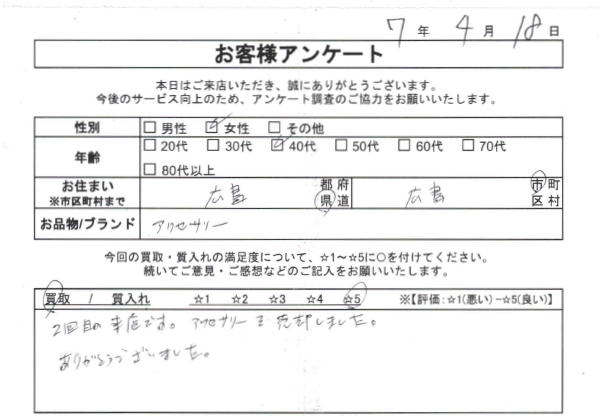 7年 4月 18日
お客様アンケート
本日はご来店いただき、誠にありがとうございます。
今後のサービス向上のため、アンケート調査のご協力をお願いいたします。
性別 □ 男性 ☑ 女性 □ その他
年齢 □ 20代 □ 30代 ☑ 40代 □ 50代 □ 60代 □ 70代
□ 80代以上
お住まい 広島 都 府 広島 市 町
※市区町村まで 県 道 区 村
お品物/ブランド アクセサリー
今回の買取・質入れの満足度について、☆1～☆5に○を付けてください。
続いてご意見・ご感想などのご記入をお願いいたします。
買取 / 質入れ ☆1 ☆2 ☆3 ☆4 ☆5 ※【評価:☆1(悪い)-☆5(良い)】
2回目の来店です。アクセサリーを売却しました。
ありがとうございました。